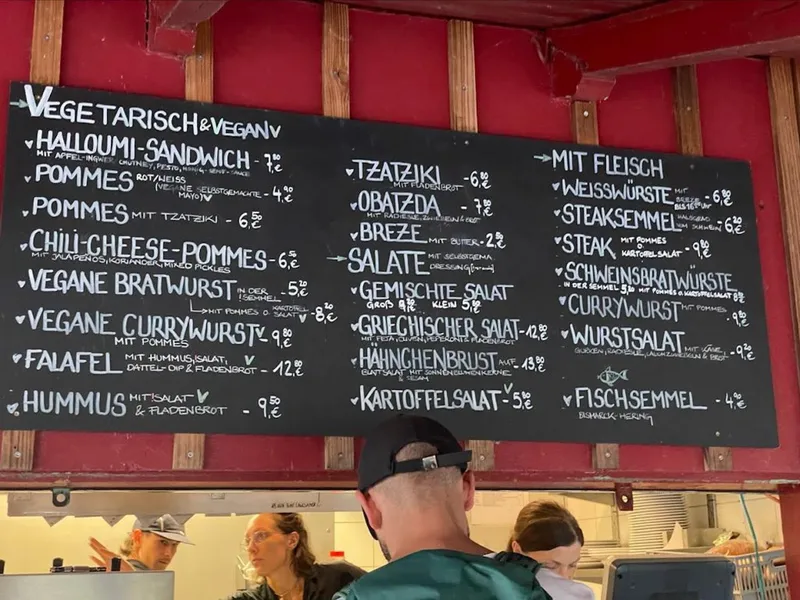 VEGETARISCH & VEGAN V
HALLOUMI-SANDWICH - 7,80 €
MIT APFEL-INGWER CHUTNEY, PESTO, HONIG-SENF-SAUCE
POMMES ROT/WEISS - 4,90 €
(VEGANE SELBSTGEMACHTE MAYO) V
POMMES MIT TZATZIKI - 6,50 €
CHILI-CHEESE-POMMES - 6,50 €
MIT JALAPEÑOS, KORIANDER, MIXED PICKLES
VEGANE BRATWURST IN DER SEMMEL - 5,20 €
MIT POMMES O. KARTOFFELSALAT V - 8,20 €
VEGANE CURRYWURST V - 9,80 €
MIT POMMES
FALAFEL MIT HUMMUS, SALAT, V
DATTEL-DIP & FLADENBROT - 12,80 €
HUMMUS MIT SALAT V
& FLADENBROT - 9,50 €
TZATZIKI - 6,80 €
MIT FLADENBROT
OBATZDA - 7,80 €
MIT RADIESLE, ZWIEBELN & BROT
BREZE MIT BUTTER - 2,50 €
SALATE MIT SELBSTGEMA.
DRESSING
GEMISCHTE SALAT
GROSS 9,20 KLEIN 5,80
GRIECHISCHER SALAT - 12,80 €
MIT FETA, OLIVEN, PEPERONI & FLADENBROT
HÄHNCHENBRUST AUF - 13,80 €
BLATTSALAT MIT SONNENBLUMENKERNE
& SESAM
KARTOFFELSALAT V - 5,80 €
MIT FLEISCH
WEISSWÜRSTE MIT BREZE - 6,80 €
BIS 16 UHR
STEAKSEMMEL HALSGRAD VOM SCHWEIN - 6,20 €
STEAK MIT POMMES O. KARTOFFELSALAT - 9,80 €
SCHWEINSBRATWÜRSTE
IN DER SEMMEL 5,20 MIT POMMES O. KARTOFFELSALAT 8,20 €
CURRYWURST MIT POMMES - 9,80 €
WURSTSALAT MIT KÄSE, - 9,20 €
GURKEN, RADIESLE, LAUCHZWIEBELN & BROT
FISCHSEMMEL - 4,90 €
BISMARCK-HERING